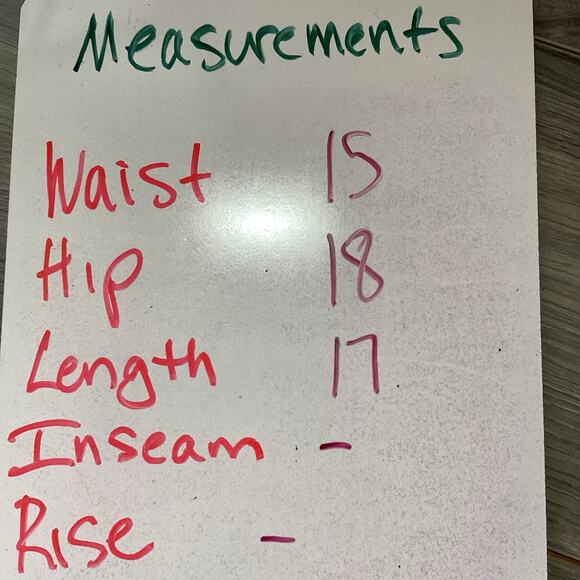 Measurements
Waist 15
Hip 18
Length 17
Inseam -
Rise -